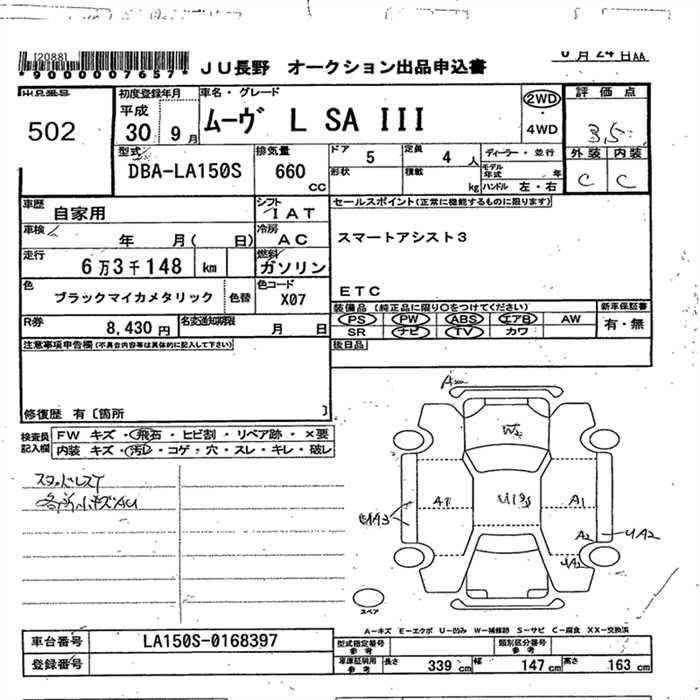 [2088]
*9000007657*
JU長野 オークション出品申込書
月24日AA
出品番号
502
初度登録年月
平成
30 9月
車名・グレード
ムーヴ L SA III
2WD
・
4WD
評価点
3.5
外装 内装
C C
型式
DBA-LA150S
排気量
660
cc
ドア 5
形状
定員 4 人
積載 kg
ディーラー・並行
モデル年式 年
ハンドル 左・右
車歴
自家用
シフト
IAT
車検
年 月( 日)
冷房
AC
走行
6万3千148 km
燃料
ガソリン
色
ブラックマイカメタリック
色替
色コード
X07
R券
8,430円
名変通知期限
月 日
セールスポイント(正常に機能するものに限ります)
スマートアシスト3
ETC
装備品 (純正品に限り○をつけてください)
PS PW ABS エアB AW
SR ナビ TV カワ
新車保証書
有・無
後日品
注意事項申告欄(不具合内容等は具体的に記入して下さい)
修復歴 有〔箇所 〕
検査員記入欄
FW キズ・飛石・ヒビ割・リペア跡・×要
内装 キズ・汚レ・コゲ・穴・スレ・キレ・破レ
スタッドレス
各所小キズAU
A
W2
UA3
A1
A1
A2
UA2
スペア
A-キズ E-エクボ U-凹み W-補修跡 S-サビ C-腐食 XX-交換済
車台番号 LA150S-0168397
登録番号
型式指定番号
参考
類別区分番号
参考
車庫証明用
参考
長さ 339 cm 幅 147 cm 高さ 163 cm